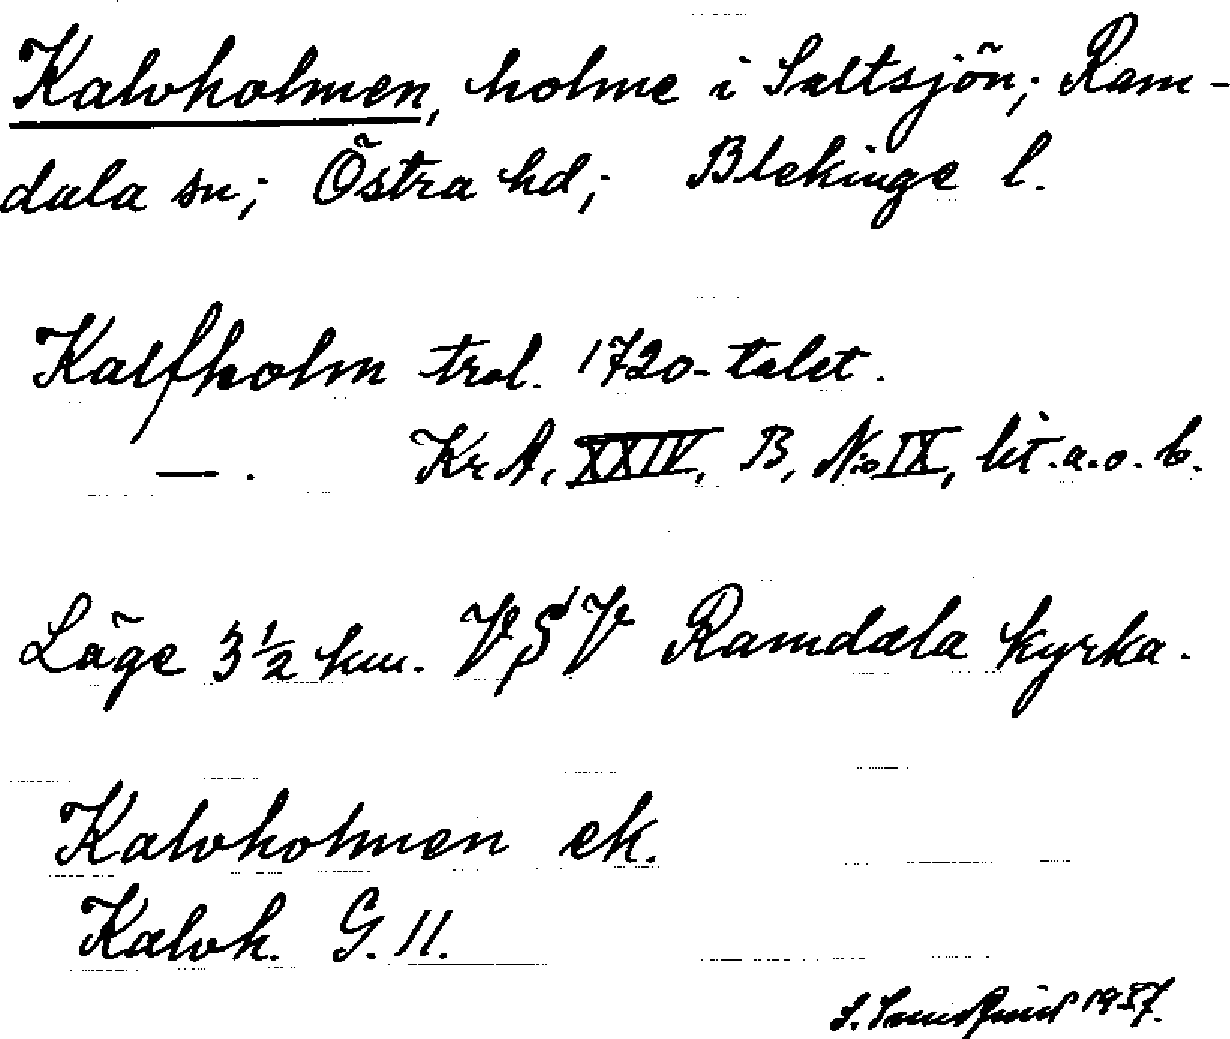 Kalvholmen, holme i Saltsjön; Ram-
dala sn; Östra hd; Blekinge l.
Kalfholm trol. 1720-talet.
—. Kr A, XXIV, B, No IX, lit. a. o. b.
Läge 3 ½ km. VSV Ramdala kyrka.
Kalvholmen ek.
Kalvh. G. 11.
S. 1957.